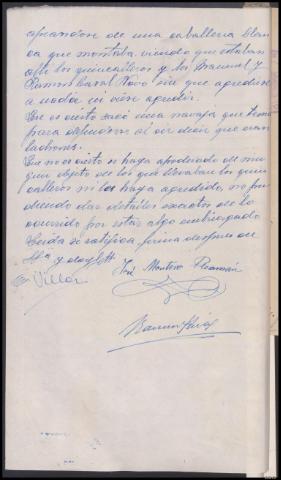 apeandose de una caballeria blan
ca que montaba, viendo que estaban
alli los quincalleros y los Manuel y
Ramon Casal Novo sin que agrediese
a nadie ni viese agredir.
Que es cierto sacó una navaja que tenia
para defenderse al oir decir que eran
ladrones.
Que no es cierto se haya apoderado de nin
gun objeto de los que llevaban los quin
calleros ni les haya agredido, no pu
diendo dar detalles exactos de lo
ocurrido por estar algo embriagado
Leida se ratifica, firma despues de
Sª y doy fé
Villar
José Montero